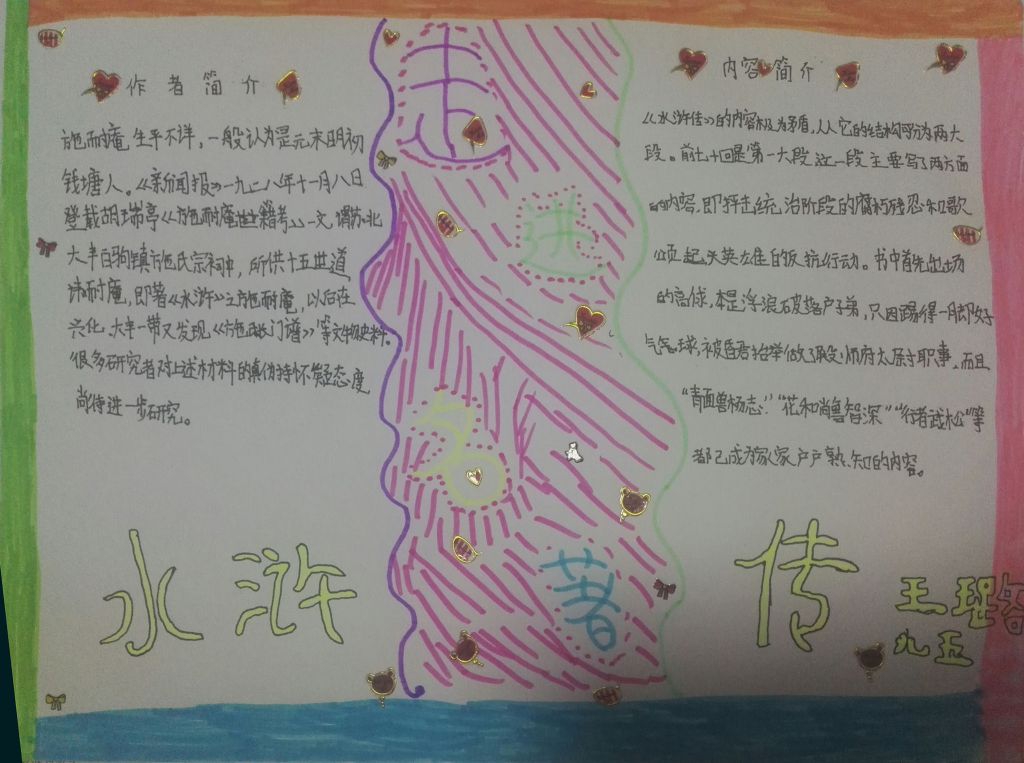 作者简介
施耐庵生平不详，一般认为是元末明初
钱塘人。《新闻报》一九二八年十一月八日
登载胡瑞亭《施耐庵世籍考》一文，谓苏北
大丰白驹镇施氏宗祠中，所供十五世道
讳耐庵，即著《水浒》之施耐庵，以后在
兴化、大丰一带又发现《施氏族门谱》等文物史料。
很多研究者对上述材料的真伪持怀疑态度
尚待进一步研究。
走
进
名
著
内容简介
《水浒传》的内容极为矛盾，从它的结构可分为两大
段。前七十回是第一大段这一段主要写了两方面
的内容，即抨击统治阶段的腐朽残忍和歌
颂起失英雄的反抗行动。书中首先出场
的高俅，本是浮浪破落户子弟，只因踢得一脚好
气毬，被
太尉职事，而且
“青面兽杨志”“花和尚鲁智深”“行者武松”等
都已成为家家户户熟知的内容。
水浒传
王珵
九五